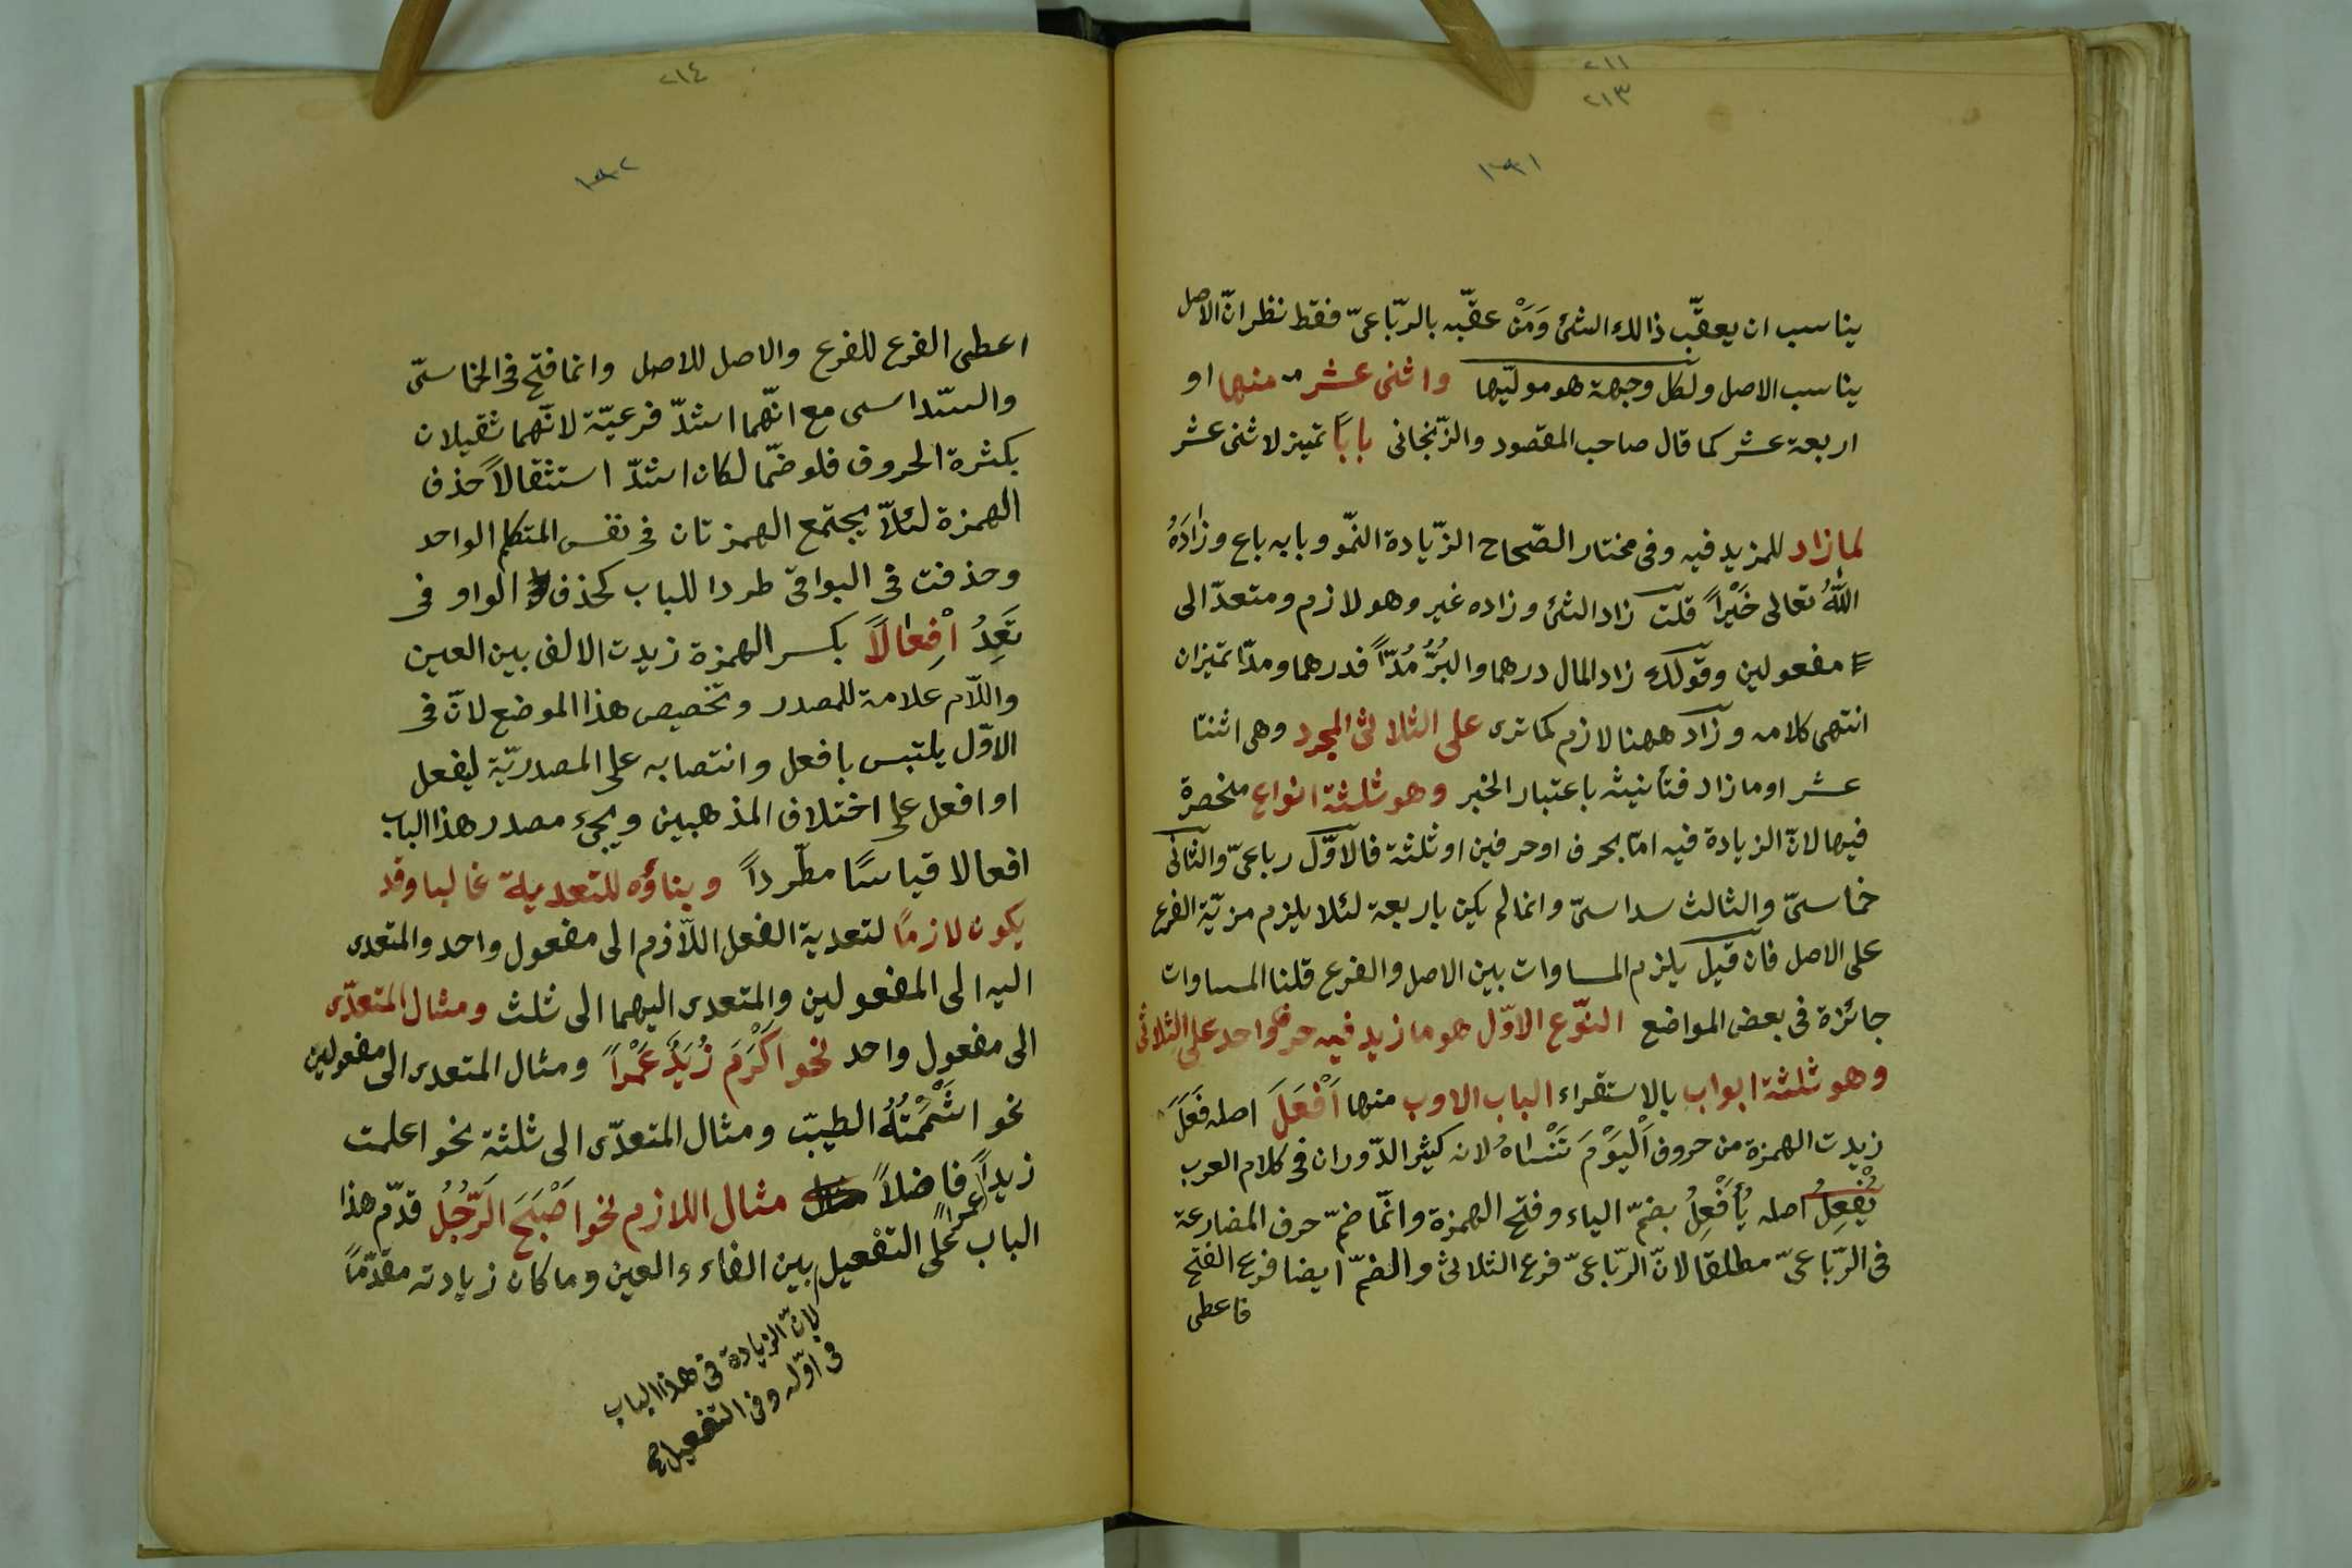 ٢١١
٢١٣
١٣١
يناسب ان يعقّب ذالك الشئ وَمَنْ عقّبه بالربّاعىّ فقط نظر انّ الاصل
يناسب الاصل ولكل وجهة هو مولّيها واثنى عشر منها او
اربعة عشر كما قال صاحب المقصود والزّنجانى بابًا تميز لاثنى عشر
لما زاد للمزيد فيه وفى مختار الصّحاح الزّيادة النّمو وبابه باع وزادَهُ
اللّٰهُ تعالى خَيْراً قلت زاد الشئ وزاده غير وهو لازم ومتعدّ الى
مفعولين وقولك زاد المال درهما والبُرُّ مُدّاً فدرهما ومدّا تميزان
انتهى كلامه وزاد ههنا لازم كما ترى على الثلاثىّ المجرد وهى اثنتا
عشر او ما زاد فتأنيثه باعتبار الخبر وهو ثلثة انواع منحصرة
فيها لانّ الزيادة فيه امّا بحرف او حرفين او ثلثة فالاوّل رباعىّ والثانى
خماسىّ والثالث سداسىّ وانما لم يكن باربعة لئلا يلزم مزيّة الفرع
على الاصل فان قيل يلزم المساوات بين الاصل والفرع قلنا المساوات
جائزة فى بعض المواضع النّوع الاوّل هو ما زيد فيه حرف واحد على الثلاثى
وهو ثلثة ابواب بالاستقراء الباب الاول منها اَفْعَلَ اصله فَعَلَ
زيدت الهمزة من حروف اَلْيَوْمَ تَنْسَاهُ لانه كثير الدّوران فى كلام العرب
يُفْعِلُ اصله يُأَفْعِلُ بضمّ الياء وفتح الهمزة وانّما ضمّ حرف المضارعة
فى الرّباعىّ مطلقا لانّ الرّباعىّ فرع الثلاثى والضمّ ايضا فرع الفتح
فاعطى
٢١٤
١٣٢
اعطى الفرع للفرع والاصل للاصل وانما فتح فى الخماسىّ
والسّداسى مع انّهما اشدّ فرعيّة لانّهما ثقيلان
بكثرة الحروف فلو ضمّا لكان اشدّ استثقالاً حذف
الهمزة لئلاّ يجتمع الهمزتان فى نفس المتكلم الواحد
وحذفت فى البواقى طردا للباب كحذف الواو فى
تَعِدُ اِفْعالاً بكسر الهمزة زيدت الالف بين العين
واللّام علامة للمصدر وتخصيص هذا الموضع لانّ فى
الاوّل يلتبس بافعل وانتصابه على المصدريّة ليفعل
او افعل على اختلاف المذهبين ويجئ مصدر هذا الباب
افعالا قياسًا مطّرداً وبناؤه للتعدية غالبا وقد
يكون لازمًا لتعدية الفعل اللاّزم الى مفعول واحد والمتعدى
اليه الى المفعولين والمتعدى اليهما الى ثلث ومثال المتعدّى
الى مفعول واحد نحو اَكْرَمَ زَيْدٌ عَمْراً ومثال المتعدى الى مفعولين
نحو اَشْمَمْتُهُ الطيبَ ومثال المتعدّى الى ثلثة نحو اعلمت
زيداً عمراً فاضلاً مثال اللازم نحو اَصْبَحَ الرَّجُلُ قدّم هذا
الباب على التفعيل بين الفاء والعين وما كان زيادته مقدّمًا
لانّ الزيادة فى هذا الباب
فى اوّله وفى التفعيل صح